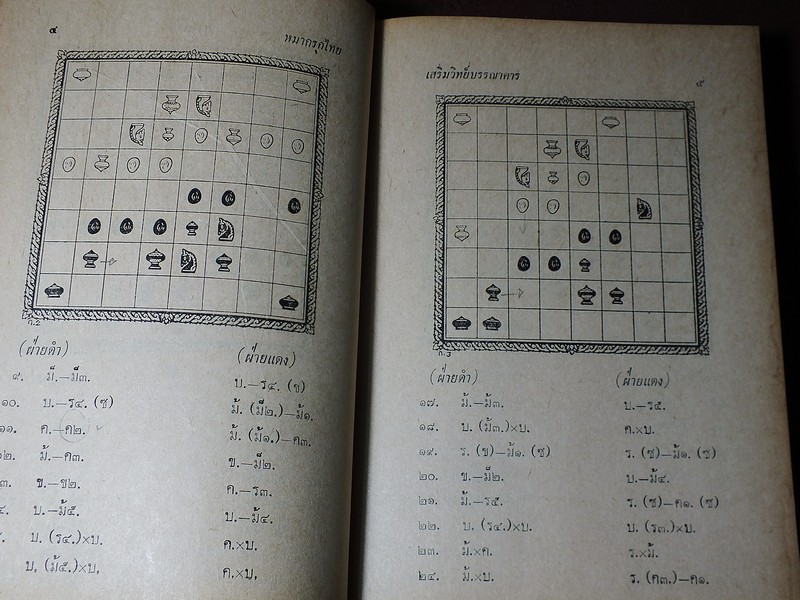 ๔
หมากรุกไทย
ก.2
(ฝ่ายดำ) (ฝ่ายแดง)
๙. ม็.—ม็๓. บ.—ร๔. (ซ)
๑๐. บ.—ร๔. (ซ) ม้. (ม็๒.)—ม้๑.
๑๑. ค.—ค๒. ม้. (ม้๑.)—ค๓.
๑๒. ม้.—ค๓. ข.—ม็๒.
๓. ข.—ข๒. ค.—ร๓.
๔. บ.—ม้๕. บ.—ม้๔.
บ. (ร๔.)×บ. ค.×บ.
บ. (ม้๕.)×บ. ค.×บ.
เสริมวิทย์บรรณาคาร
๕
ก.3
(ฝ่ายดำ) (ฝ่ายแดง)
๑๗. ม้.—ม้๓. บ.—ร๕.
๑๘. บ. (ม้๓.)×บ. ค.×บ.
๑๙. ร. (ข)—ม้๑. (ซ) ร. (ซ)—ม้๑. (ซ)
๒๐. ข.—ม็๒. บ.—ม้๔.
๒๑. ม้.—ร๕. ร. (ซ)—ค๑. (ซ)
๒๒. บ. (ร๔.)×บ. บ. (ร๓.)×บ.
๒๓. ม้.×ค. ร.×ม้.
๒๔. ม้.×บ. ร. (ค๓.)—ค๑.